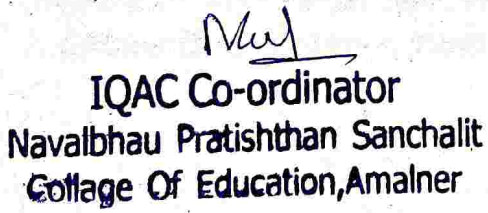 IQAC Co-ordinator
Navalbhau Pratishthan Sanchalit
Collage Of Education,Amalner